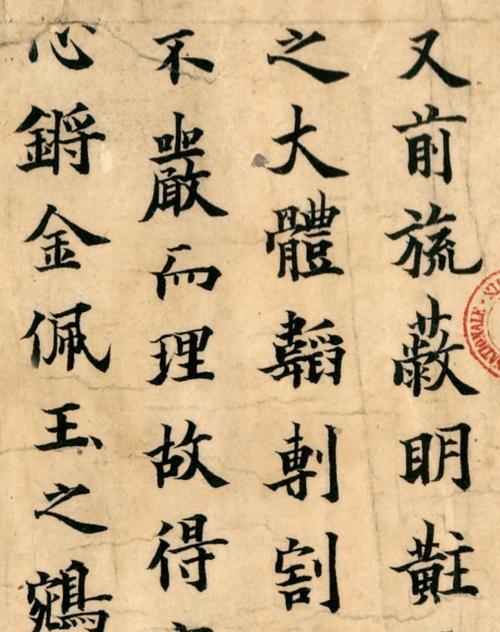 又前旒蔽明黈
之大體韜剸割
不嚴而理故得
心鏘金佩玉之鵷
NATIONALE